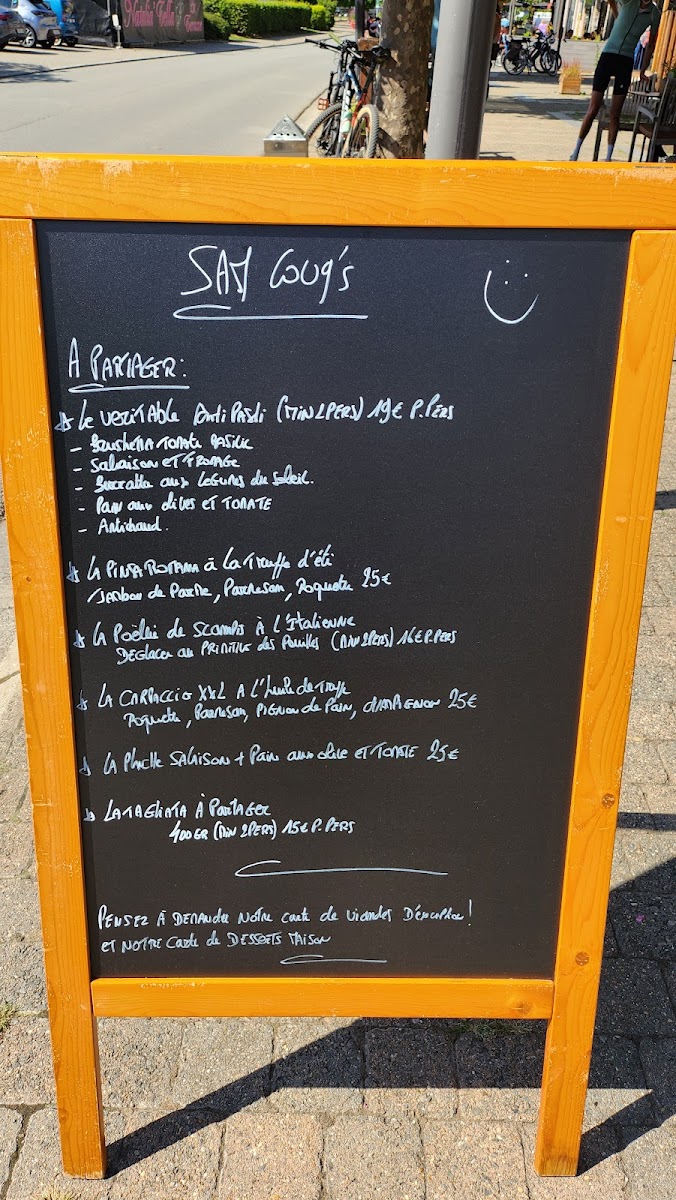 SAM COUQ'S
A PARTAGER:
Le VERITABLE Anti Pasti (MIN 2 PERS) 19€ P. PERS
- Bruschetta TOMATE BASILIC
- SALAISON ET FROMAGE
- Burratta aux LEGUMES du Soleil.
- PAIN aux olives ET TOMATE
- Artichaud.
LA PINSA ROMANA à La Truffe d'été
Jambon de Parme, Parmesan, Roquette 25€
La Poêlée de SCAMPIS À L'Italienne
DEGLACER au PRIMITIVO des Pouilles (MIN 2 PERS) 16€ P. PERS
LA CARPACCIO XXL A L'huile de truffe
Roquette, Parmesan, PIGNON de Pain, CHAMPIGNON 25€
LA PLANCHE SALAISON + Pain aux olive ET TOMATE 25€
LA TAGLIATA À PARTAGER
400 GR (MIN 2 PERS) 15€ P. PERS
PENSEZ À DEMANDER NOTRE carte de viandes D'exception!
ET NOTRE Carte de DESSERTS MAISON